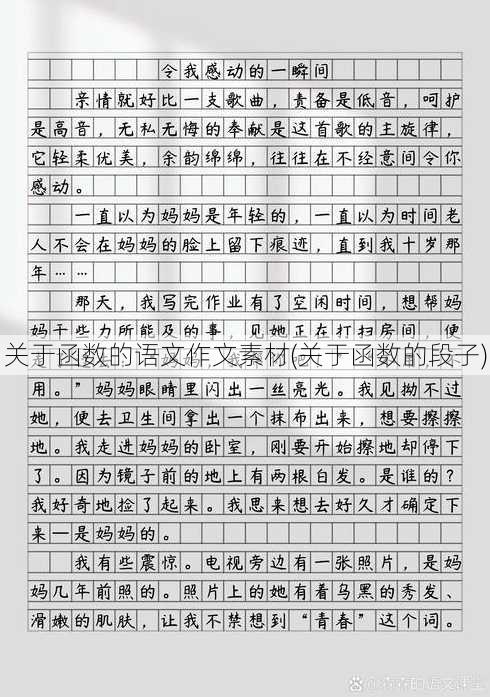 令我感动的一瞬间
亲情就好比一支歌曲，责备是低音，呵护
是高音，无私无悔的奉献是这首歌的主旋律，
它轻柔优美，余韵绵绵，往往在不经意间令你
感动。
一直以为妈妈是年轻的，一直以为时间老
人不会在妈妈的脸上留下痕迹，直到我十岁那
年……
那天，我写完作业有了空闲时间，想帮妈
妈干些力所能及的事，见她正在打扫房间，便
关于函数的语文作文素材(关于函数的段子)
用。”妈妈眼睛里闪出一丝亮光。我见拗不过
她，便去卫生间拿出一个抹布出来，想要擦擦
地。我走进妈妈的卧室，刚要开始擦地却停下
了。因为镜子前的地上有两根白发。是谁的？
我好奇地捡了起来。我思来想去好久才确定下
来—是妈妈的。
我有些震惊。电视旁边有一张照片，是妈
妈几年前照的。照片上的她有着乌黑的秀发、
滑嫩的肌肤，让我不禁想到“青春”这个词。